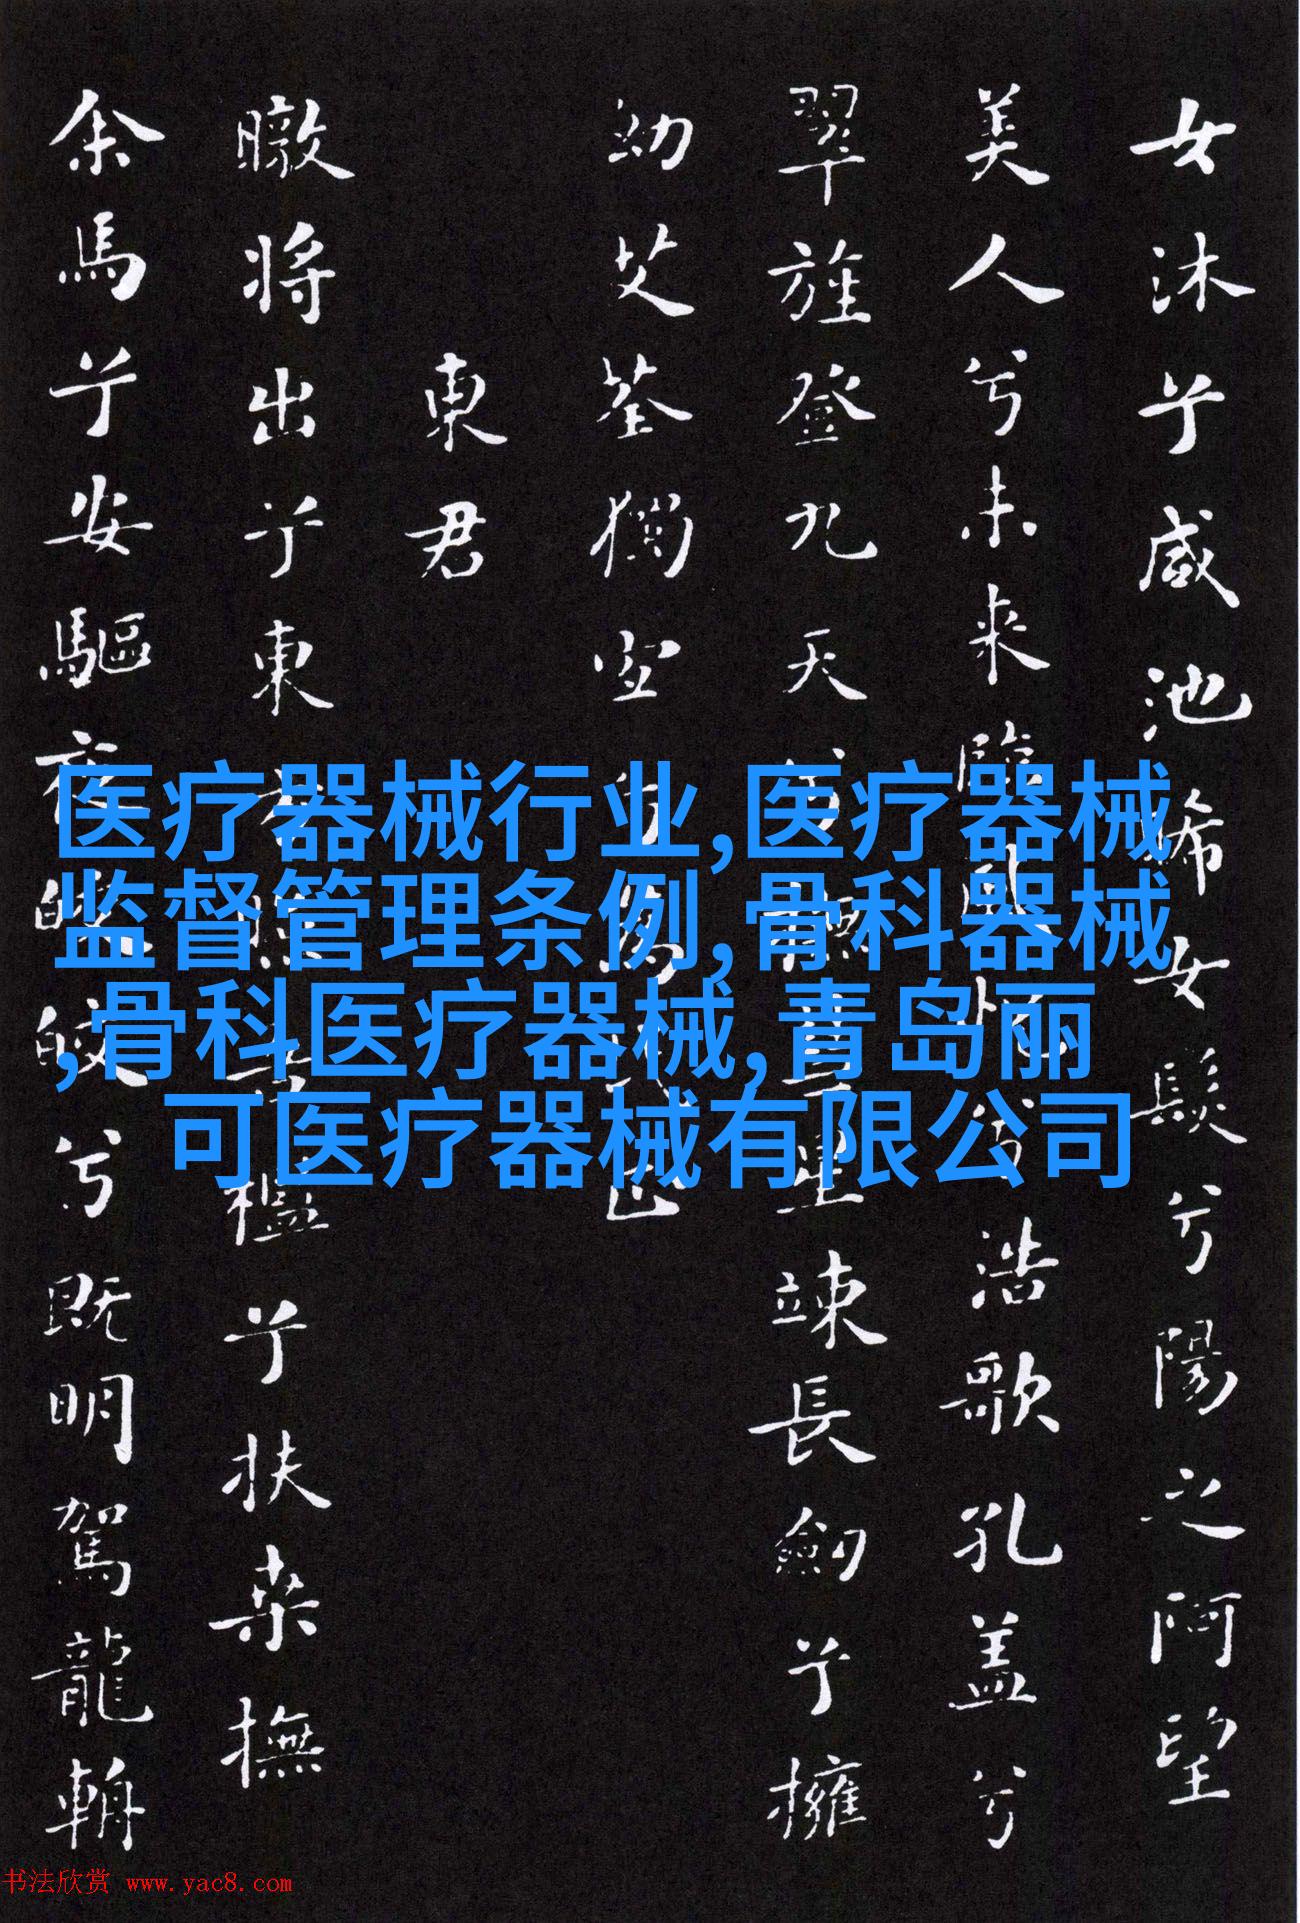 女沐兮咸池晞女髮兮陽之阿望
美人兮未来臨風怳兮浩歌孔盖兮
翠旌登九天兮撫彗星竦長劍兮擁
幼艾荃獨宜兮為民正
東君
暾将出兮東方照吾檻兮扶桑撫
余馬兮安驅夜皎皎兮既明駕龍輈
医疗器械行业,医疗器械
监督管理条例,骨科器械
,骨科医疗器械,青岛丽
可医疗器械有限公司
书法欣赏 www.yac8.com